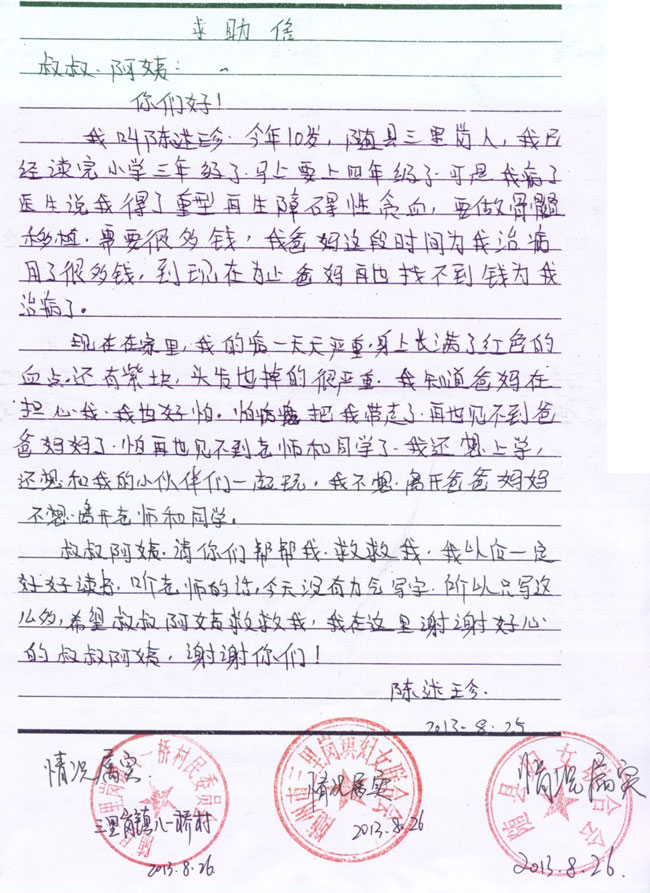 求助信
叔叔·阿姨:
你们好!
我叫陈迷珍·今年10岁,随县三里岗人,我已
经读完小学三年级了·马上要上四年级了·可是我病了
医生说我得了重型再生障碍性贫血,要做骨髓
移植·需要很多钱,我爸妈这段时间为我治病
用了很多钱,到现在为止爸妈再也找不到钱为我
治病了。
现在在家里,我的病一天天严重,身上长满了红色的
血点,还有紫块,头发也掉的很严重·我知道爸妈在
担心我·我也好怕·怕病魔把我带走了·再也见不到爸
爸妈妈了·怕再也见不到老师和同学了·我还想上学,
还想和我的小伙伴们一起玩,我不想离开爸爸妈妈
不想离开老师和同学。
叔叔阿姨·请你们帮帮我·救救我·我以后一定
好好读书·听老师的话,今天没有力气写字·所以只写这
么多,希望叔叔阿姨救救我,我在这里谢谢好心
的叔叔阿姨,谢谢你们!
陈迷珍·
2013·8·25
情况属实·
三里岗镇八一桥村
2013.8.26
随州市三里岗镇妇女联合会
情况属实
2013.8.26
随县妇女联合会
情况属实
2013.8.26